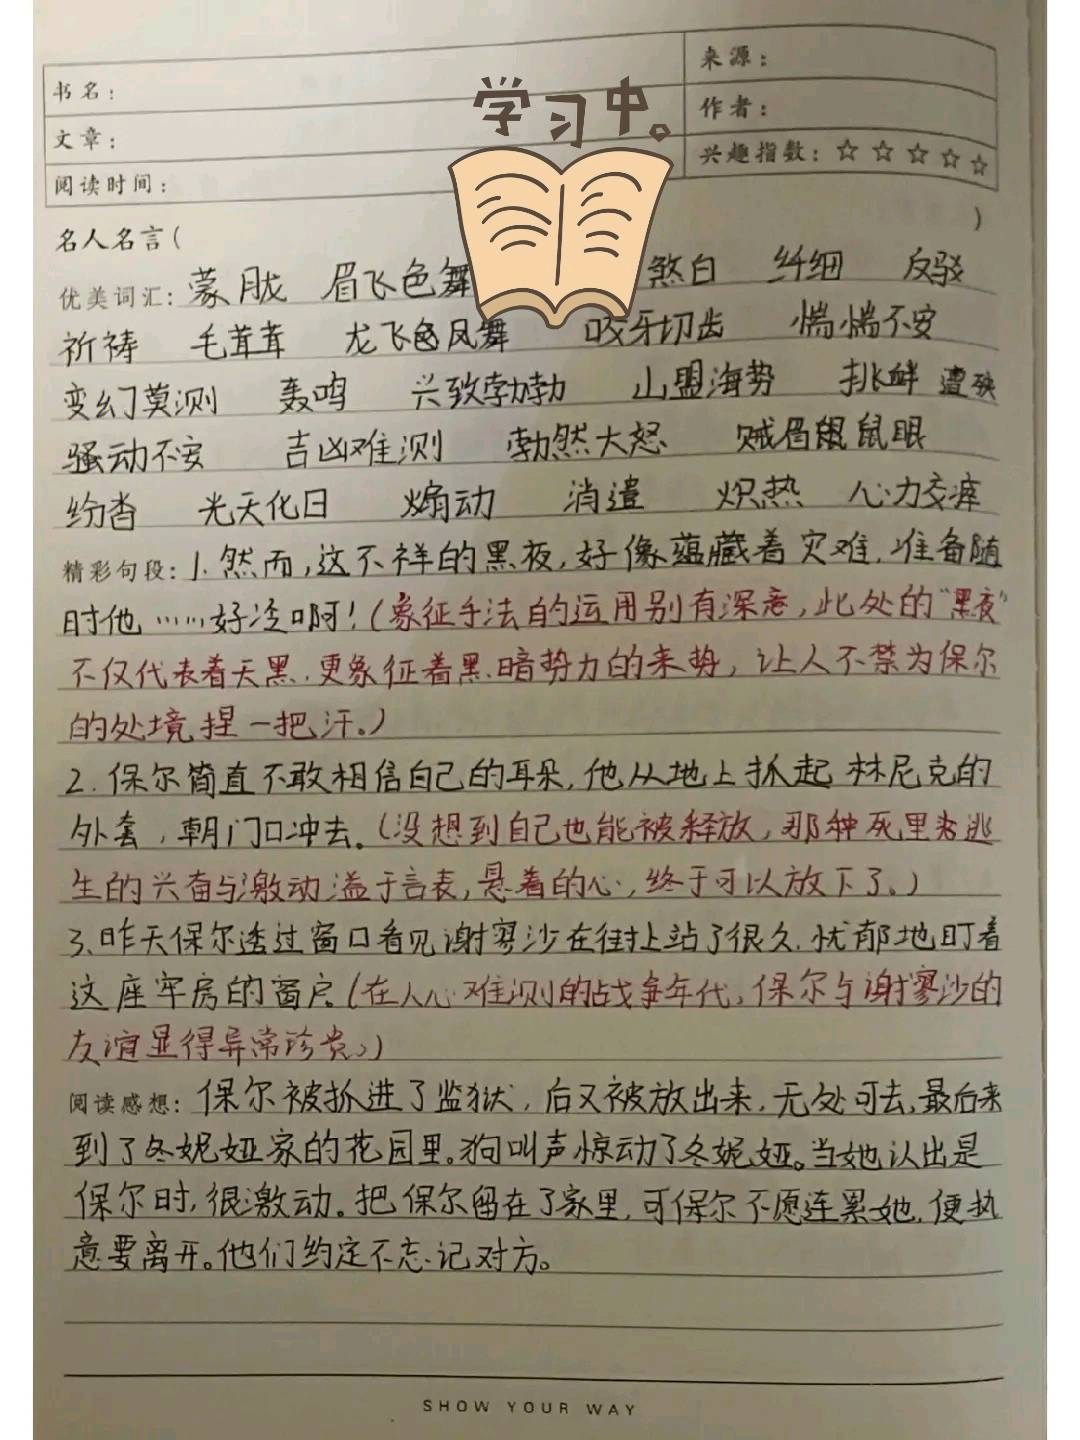 学习中。
书名：
来源：
文章：
作者：
阅读时间：
兴趣指数：☆☆☆☆☆
名人名言（ ）
优美词汇：蒙胧 眉飞色舞 煞白 纤细 反驳
祈祷 毛茸茸 龙飞凤舞 咬牙切齿 惴惴不安
变幻莫测 轰鸣 兴致勃勃 山盟海势 挑衅 遭殃
骚动不安 吉凶难测 勃然大怒 贼眉鼠眼
纷沓 光天化日 煽动 消遣 炽热 心力交瘁
精彩句段：1.然而，这不祥的黑夜，好像蕴藏着灾难，准备随
时他……好冷啊！（象征手法的运用别有深意，此处的“黑夜”
不仅代表着天黑，更象征着黑暗势力的来势，让人不禁为保尔
的处境捏一把汗。）
2.保尔简直不敢相信自己的耳朵，他从地上抓起林尼克的
外套，朝门口冲去。（没想到自己也能被释放，那种死里逃
生的兴奋与激动溢于言表，悬着的心，终于可以放下了。）
3、昨天保尔透过窗口看见谢寥沙在街上站了很久，忧郁地盯着
这座牢房的窗户。（在人心难测的战争年代，保尔与谢寥沙的
友谊显得异常珍贵。）
阅读感想：保尔被抓进了监狱，后又被放出来，无处可去，最后来
到了冬妮娅家的花园里。狗叫声惊动了冬妮娅。当她认出是
保尔时，很激动。把保尔留在了家里，可保尔不愿连累她，便执
意要离开。他们约定不忘记对方。
SHOW YOUR WAY